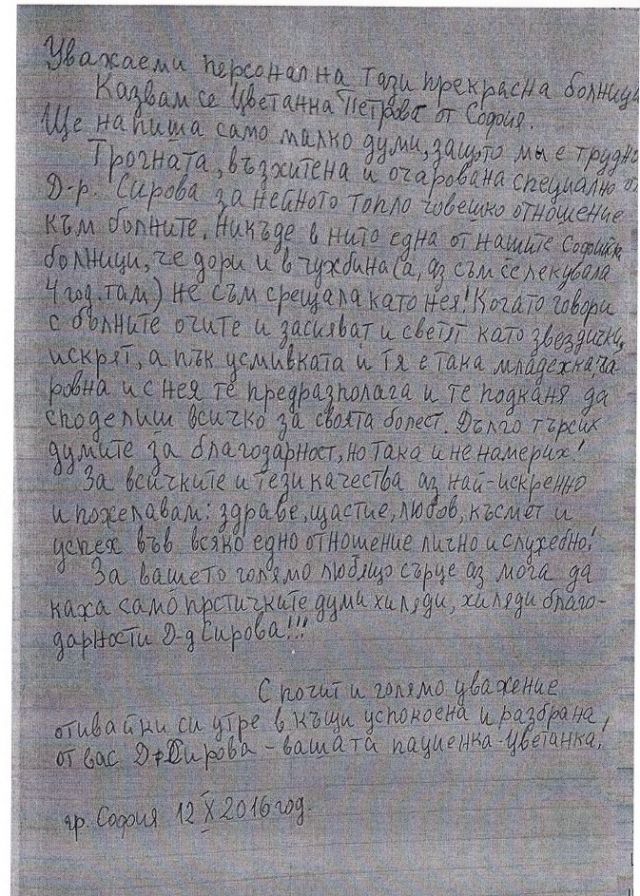 Уважаеми персонал на тази прекрасна болница
Казвам се Цветанна Петрова от София.
Ще напиша само малко думи, защото мы е трудно
Трогната, възхитена и очарована специално от
Д-р. Сирова за нейното топло човешко отношение
към болните. Никъде в нито една от нашите Софийски
болници, че дори и в чужбина (а, аз съм се лекувала
4 год. там) не съм срещала като нея! Когато говори
с болните очите и засияват и светят като звездички,
искрят, а пък усмивката и тя е така младежка ча
ровна и с нея те предразполага и те подканя да
споделиш всичко за своята болест. Дълго търсих
думите за благодарност, но така и не намерих!
За всичките и тези качества аз най-искренно
и пожелавам: здраве, щастие, любов, късмет и
успех във всяко едно отношение лично и служебно!
За вашето голямо любящо сърце аз мога да
кажа само простичките думи хиляди, хиляди благо-
дарности Д-р Сирова!!!
С почит и голямо уважение
отивайки си утре в къщи успокоена и разбрана,
от вас Д-р Сирова - вашата пациенка - Цветанка!
гр. София 12 X 2016 год.